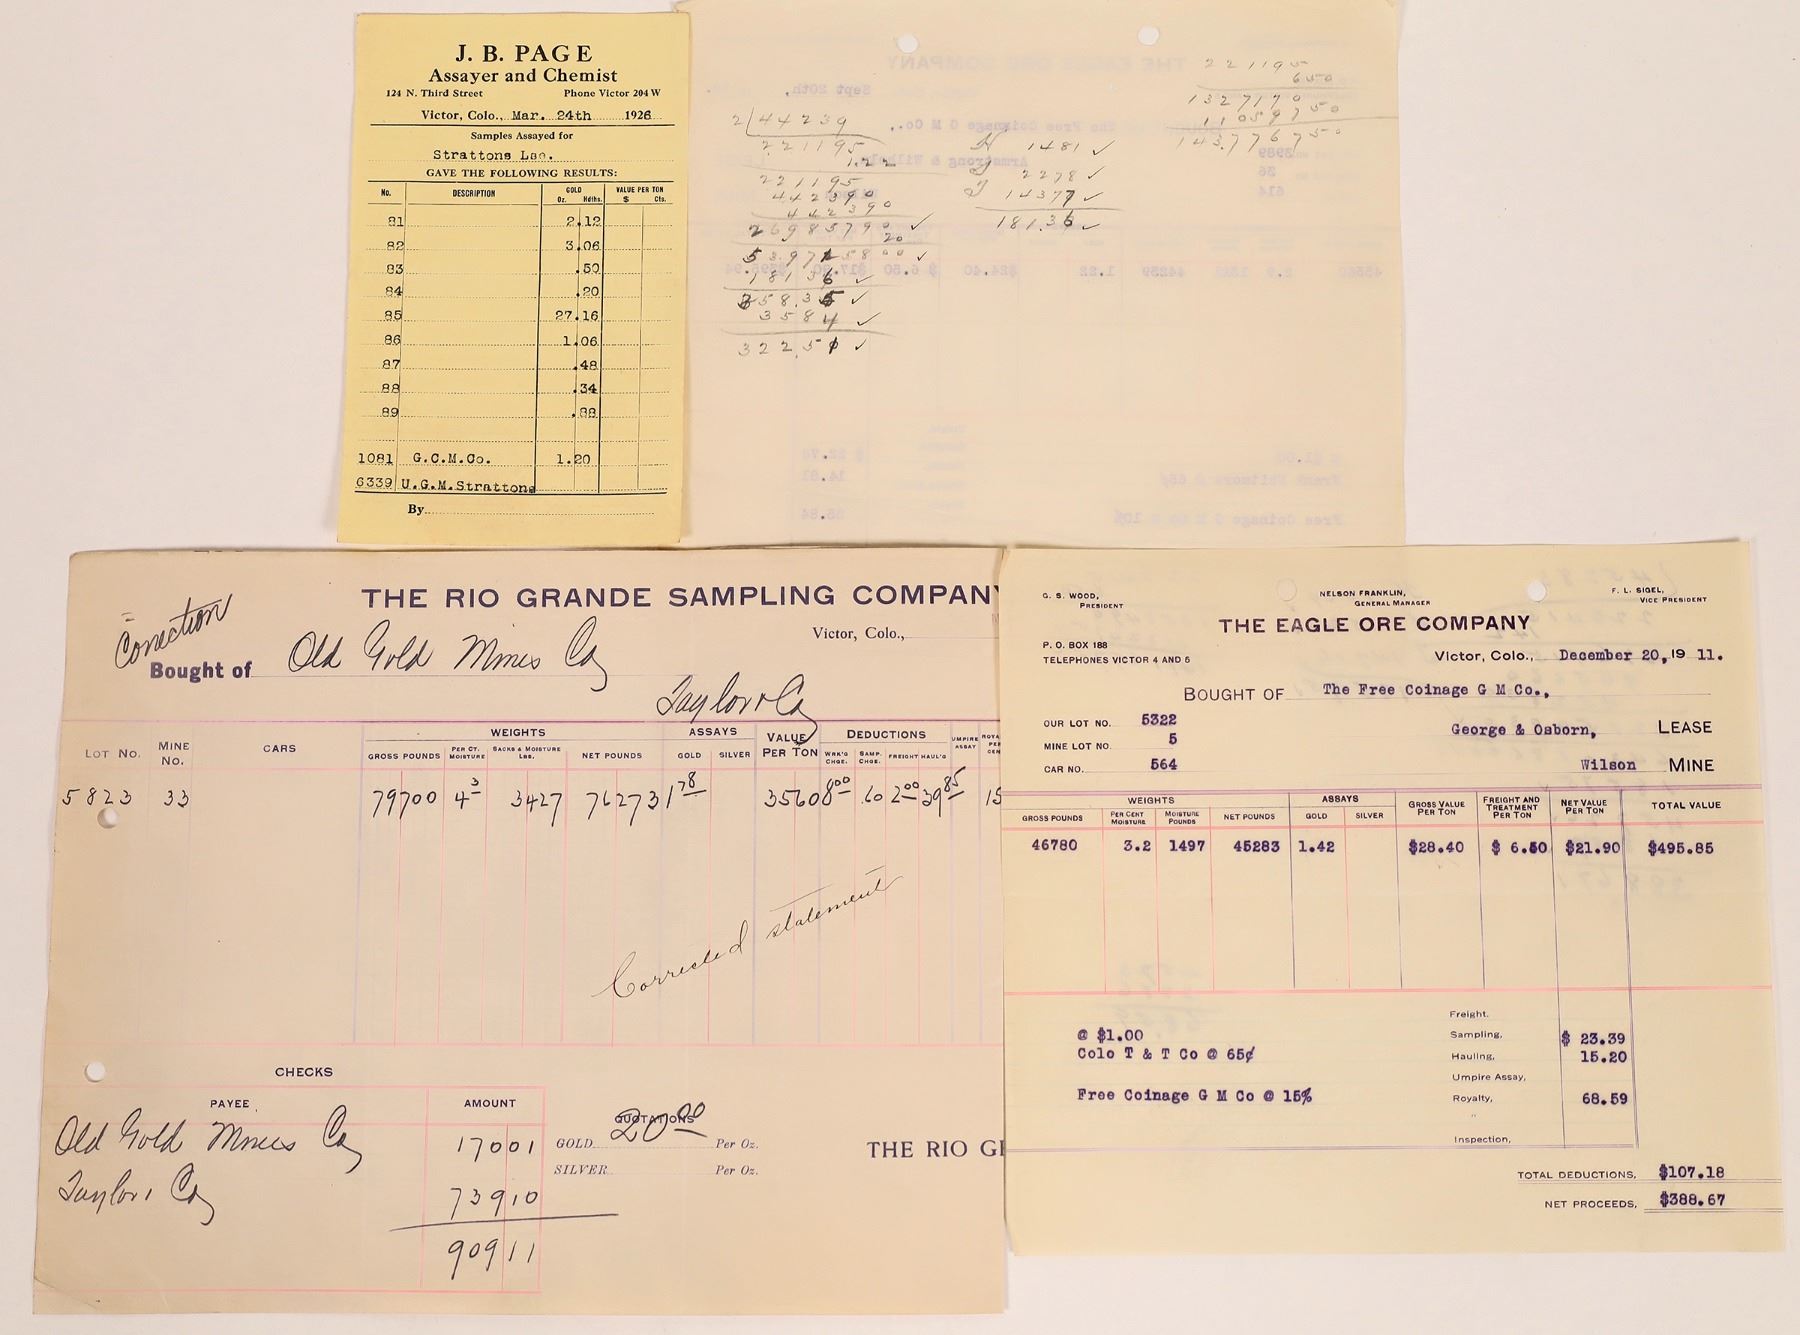 J. B. PAGE
Assayer and Chemist
124 N. Third Street Phone Victor 204 W
Victor, Colo., Mar. 24th 1926
Samples Assayed for
Strattons Lse.
GAVE THE FOLLOWING RESULTS:
No. DESCRIPTION GOLD VALUE PER TON
Oz. Hdths. $ Cts.
81 2.12
82 3.06
83 .50
84 .20
85 27.16
86 1.06
87 .48
88 .34
89 .88
1081 G.C.M.Co. 1.20
6339 U.G.M.Strattons
By
2 44239
221195
1.22
221195
442390
442390
26985790
20
181 36
3584
221195
650
1327170
11059750
143.776750
1481
2278
14377
181.36
THE RIO GRANDE SAMPLING COMPANY
Correction
Victor, Colo.,
Bought of Old Gold Mines Co
Taylor & Co
LOT No. MINE No. CARS WEIGHTS ASSAYS VALUE PER TON DEDUCTIONS UMPIRE ASSAY
GROSS POUNDS PER CT. MOISTURE SACKS & MOISTURE LBS. NET POUNDS GOLD SILVER WRK'G CHGE. SAMP. CHGE. FREIGHT HAUL'G
5823 33 79700 4 3 3427 76273 1 78 3560 8 00 .60 2 00 39 85 15
Corrected statement
CHECKS
PAYEE AMOUNT
Old Gold Mines Co 170 01
Taylor & Co 739 10
909 11
QUOTATIONS
GOLD 20 00 Per Oz.
SILVER Per Oz.
THE RIO GR
G. S. WOOD, PRESIDENT
NELSON FRANKLIN, GENERAL MANAGER
F. L. SIGEL, VICE PRESIDENT
THE EAGLE ORE COMPANY
P. O. BOX 188
TELEPHONES VICTOR 4 AND 5
Victor, Colo., December 20, 19 11.
BOUGHT OF The Free Coinage G M Co.,
OUR LOT NO. 5322
George & Osborn, LEASE
MINE LOT NO. 5
CAR NO. 564
Wilson MINE
WEIGHTS ASSAYS GROSS VALUE PER TON FREIGHT AND TREATMENT PER TON NET VALUE PER TON TOTAL VALUE
GROSS POUNDS PER CENT MOISTURE MOISTURE POUNDS NET POUNDS GOLD SILVER
46780 3.2 1497 45283 1.42 $28.40 $ 6.50 $21.90 $495.85
Freight.
@ $1.00 Sampling, $ 23.39
Colo T & T Co @ 65¢ Hauling, 15.20
Umpire Assay,
Free Coinage G M Co @ 15% Royalty, 68.59
"
Inspection,
TOTAL DEDUCTIONS, $107.18
NET PROCEEDS, $388.67